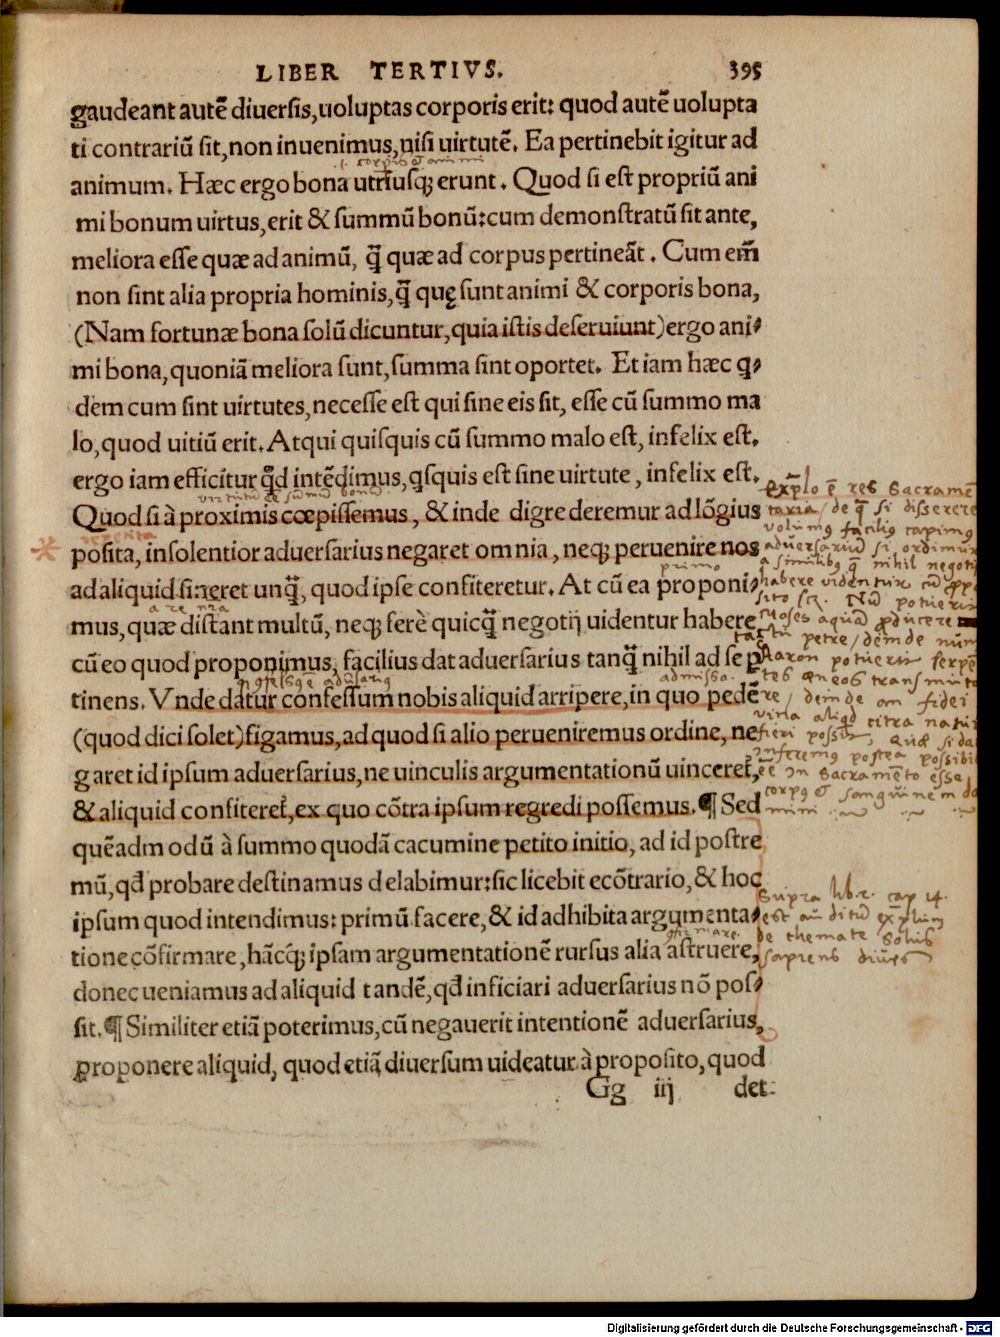 LIBER TERTIVS. 395
gaudeant autē diuersis,uoluptas corporis erit: quod autē uolupta
ti contrariū sit,non inuenimus,nisi uirtutē. Ea pertinebit igitur ad
animum. Hæc ergo bona utriusq; erunt. Quod si est propriū ani
mi bonum uirtus,erit & summū bonū:cum demonstratū sit ante,
meliora esse quæ ad animū, q̄ quæ ad corpus pertineāt. Cum em̄
non sint alia propria hominis,q̄ quę sunt animi & corporis bona,
(Nam fortunæ bona solū dicuntur,quia istis deseruiunt)ergo ani⸗
mi bona,quoniā meliora sunt,summa sint oportet. Et iam hæc q⸗
dem cum sint uirtutes,necesse est qui sine eis sit, esse cū summo ma
lo,quod uitiū erit.Atqui quisquis cū summo malo est, infelix est.
ergo iam efficitur qd̄ intēdimus,qsquis est sine uirtute, infelix est.
Quod si à proximis cœpissemus, & inde digrederemur ad lōgius
posita, insolentior aduersarius negaret omnia, neq; peruenire nos
ad aliquid sineret unq̄, quod ipse confiteretur. At cū ea proponi⸗
primo
mus,quæ distant multū, neq; ferè quicq̄ negotij uidentur habere
cū eo quod proponimus, facilius dat aduersarius tanq̄ nihil ad se p
tinens. Vnde datur confessum nobis aliquid arripere,in quo pedē
admisso.
(quod dici solet)figamus,ad quod si alio perueniremus ordine, ne
garet id ipsum aduersarius,ne uinculis argumentationū uinceret̄,
& aliquid confiteret̄,ex quo cōtra ipsum regredi possemus.¶ Sed
quēadmodū à summo quodā cacumine petito initio, ad id postre
mū,qd̄ probare destinamus delabimur:sic licebit ecōtrario,& hoc
ipsum quod intendimus: primū facere,& id adhibita argumenta⸗
tione cōfirmare,hācq; ipsam argumentationē rursus alia astruere,
donec ueniamus ad aliquid tandē,qd̄ inficiari aduersarius nō pos⸗
sit.¶ Similiter etiā poterimus,cū negauerit intentionē aduersarius,
proponere aliquid, quod etiā diuersum uideatur à proposito,quod
Gg iij det
Exp̄lo ē res Sacramē
taria / de q̄ si disserere
volumus facilius capimus
adversariū si ordimur
a similibus q̄ nihil negotij
habere videntur cū
Moses aquā producere
petre / deinde
Aaron potuerit serpē
tes æneos transmutare
re / deinde an fidei
citra natu
fieri possit
inferemus postea possibi
in Sacramēto esse
corpus et sanguinem do
mini
Supra lib. 2. cap 14.
est
de themate Solus
sapiens dives
Digitalisierung gefördert durch die Deutsche Forschungsgemeinschaft - DFG